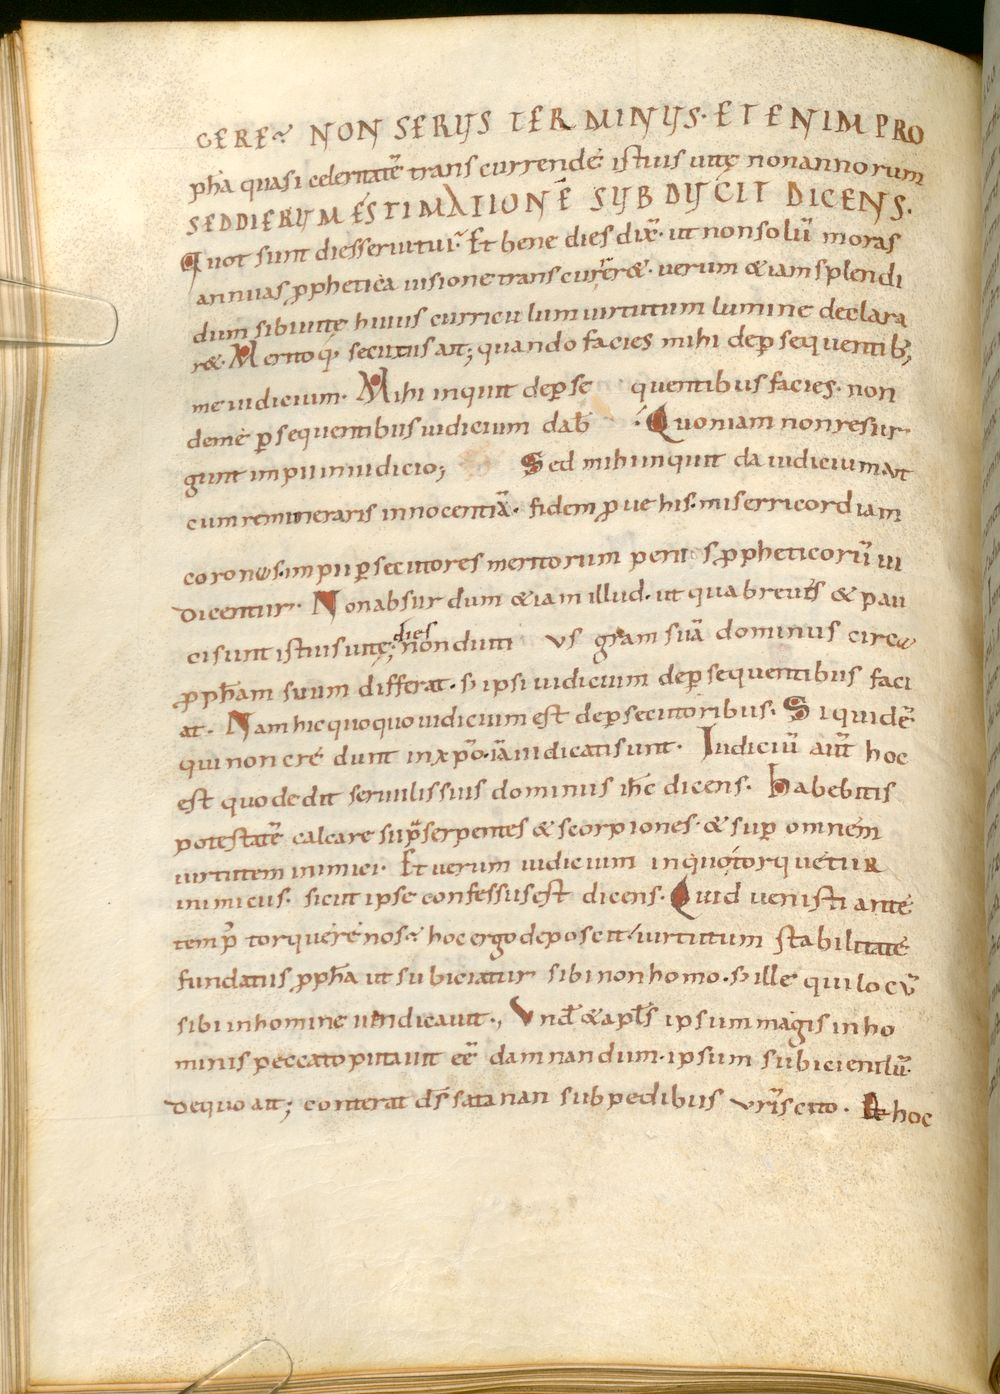 GERE? NON SERUS TERMINUS· ETENIM PRO
pħa quasi celeritatē transcurrende istius uitę non annorum
SED DIERUM ESTIMATIONĒ SUBDUCIT DICENS.
Quot sunt dies serui tui? Et bene dies dix̄· ut non solū moras
annuas ꝓphetica uisione transcurrer&· uerum &iam splendi
dum sibi uitę huius curriculum uirtutum lumine declara
r&· Merito q; secutus ait; quando facies mihi de ꝑsequentib;
me iudicium· Mihi inquit de ꝑse quentibus facies· non
de me ꝑsequentibus iudicium dab̄ · Quoniam non resur
gunt impii in iudicio; Sed mihi inquit da iudicium at
cum remuneraris innocentiā· fidem ꝓue his· misericordiam
corones· impii ꝑsecutores meritorum ꝓpheticorū iu
dicentur· Non absurdum &iam illud· ut qua breues & pau
ci sunt istius uitę dies; non diuti us gr̄am suā dominus circa
ꝓpħam suum differat· s; ipsi iudicium de ꝑsequentibus faci
at· Nam hic quoquo iudicium est de ꝑsecutoribus· Siquidē
qui non credunt in xp̄o· iā iudicati sunt· Iudiciū aūt hoc
est quod dedit seruilis suis dominus ih̄c dicens· Habebitis
potestatē calcare supra serpentes & scorpiones· & suꝑ omnem
uirtutem inimici· Et uerum iudicium in quo torquetur
inimicus· sicut ipse confessus est dicens· Quid uenisti ante
temp̄ torquere nos? hoc ergo deposcit uirtutum stabilitate
fundatus ꝓpħa ut subiciatur sibi non homo· s; ille qui locū
sibi in homine uindicauit·, Vnd̄ & apl̄s ipsum magis in ho
minis peccato putauit eē damnandum· ipsum subiciendū·
de quo ait; conterat d̄s satanan sub pedibus ur̄is cito· & hoc